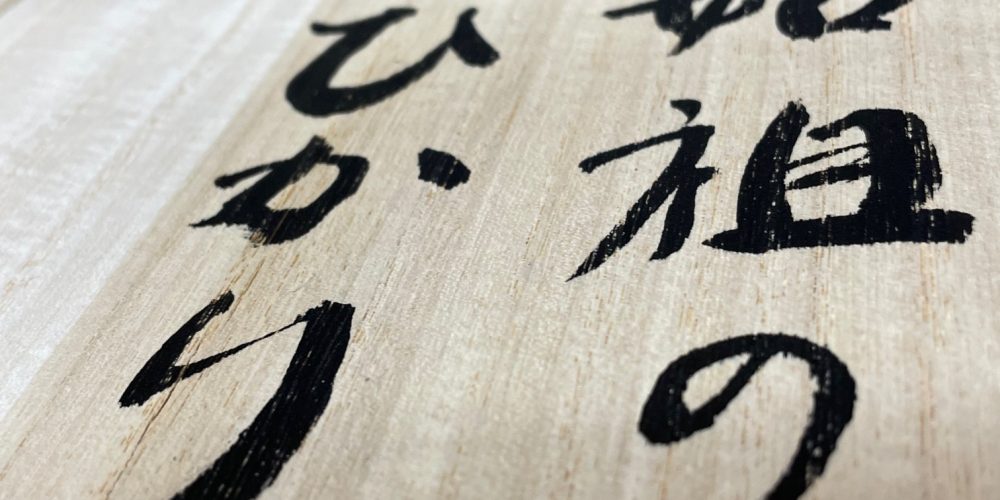 始祖の
ひかり